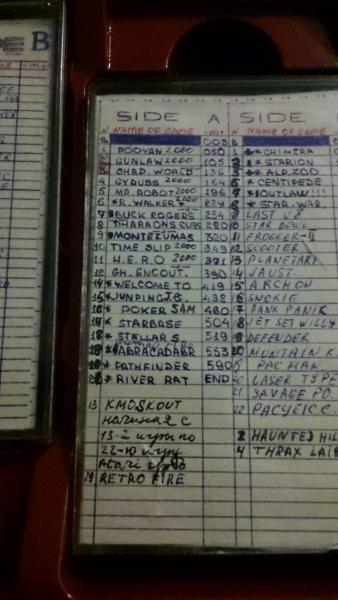 B
SIDE A SIDE
N NAME OF GAME -M+ N NAME OF GAME
003
1 POOYAN 2000 050 1 ** CHIMERA
2 GUNLAW 2000 105 2 ** STARION
3 SHAD. WORLD 136 3 ** ALP.ZOO
4 GYRUSS 2000 164 4 * CENTIPEDE
5 MR. ROBOT 2000 196 5 *OUTLAW!!!
6 *R. WALKER 2000 229 6 * STAR. WAR.
7 *BUCK ROGERS 254 7 LAST V8
8 PHARAONS CURS 280 10 STAR BOWL
9 *MONTEZUMAS 320 11 FROGGER-II
10 TIME SLIP 2000 349 12 SCOOTER
11 H.E.R.O 2000 371 13 PLANETARI
12 GH. ENCOUT. 390 14 JAUST.
14* WELCOME TO 419 15 ARCHON
15* JUNPING JB. 438 16 SNOKIE
16* POKER SAM 480 17 BANK PANIK
17* STARBASE 504 18 JET SET WILLY
18* STELLAR S 519 19 DEFENDER
19* ABRACADABR 553 20 MUNTAIN K
20* PATHFINDER 590 PAC MAN
RIVER RAT END LASER TYPE
21 SAVAGE PO.
13 KMOSKOUT 22 PACYFIC C.
начиная с
13-й игры по 2 HAUNTED HIL
22-ю игру 4 THRAX LAIR
Atari
19 RETRO FIRE